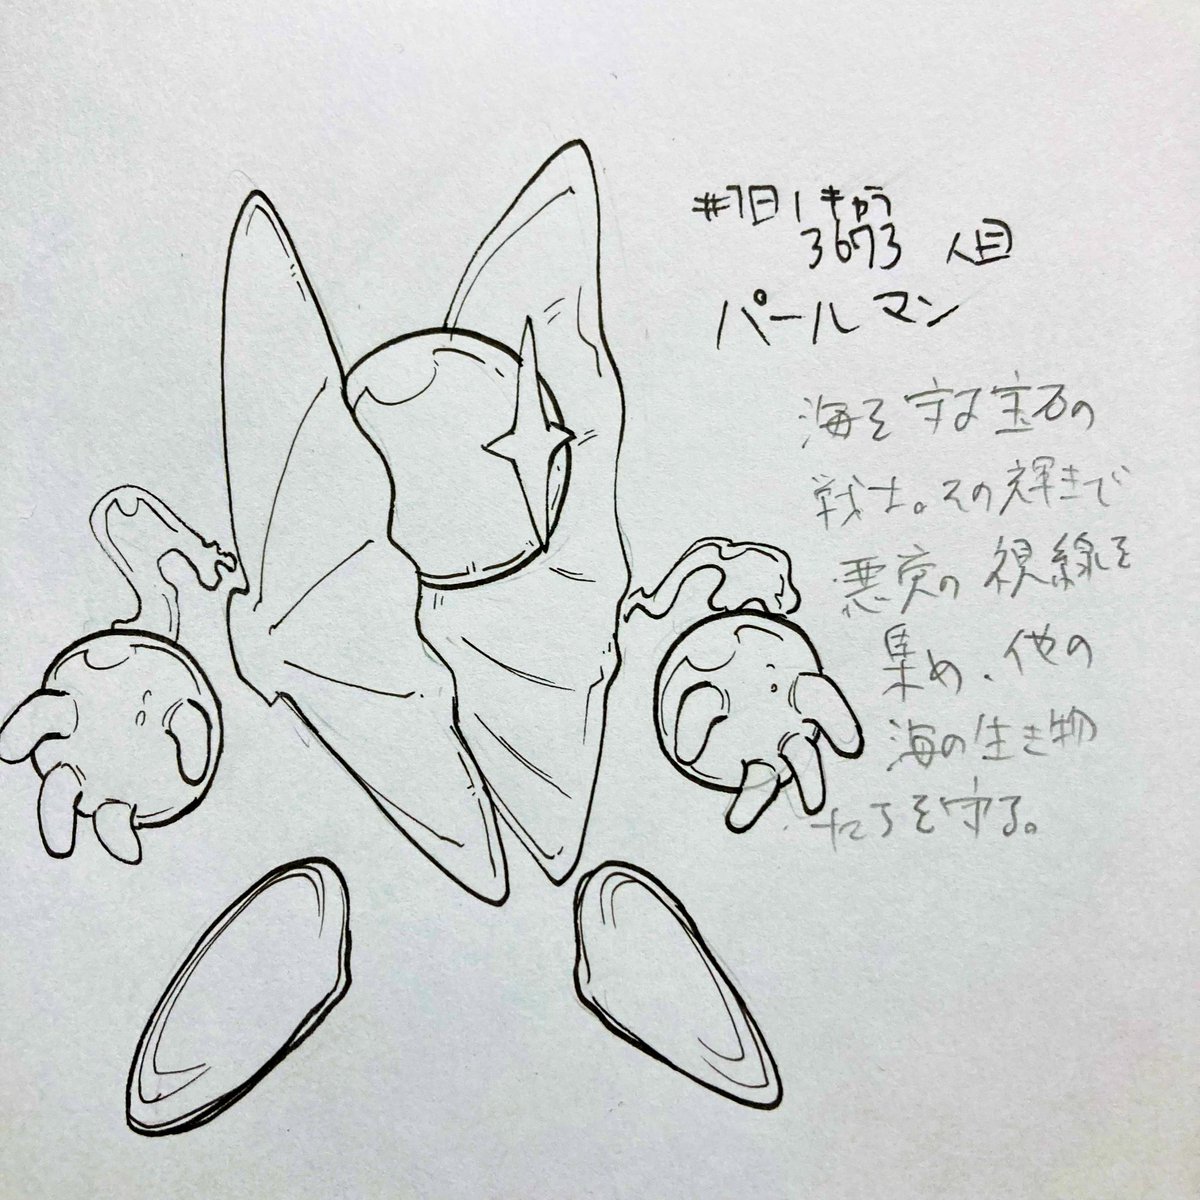 #1日1キャラ
3673人目
パールマン
海を守る宝石の
戦士。その輝きで
悪党の視線を
集め、他の
海の生き物
たちを守る。